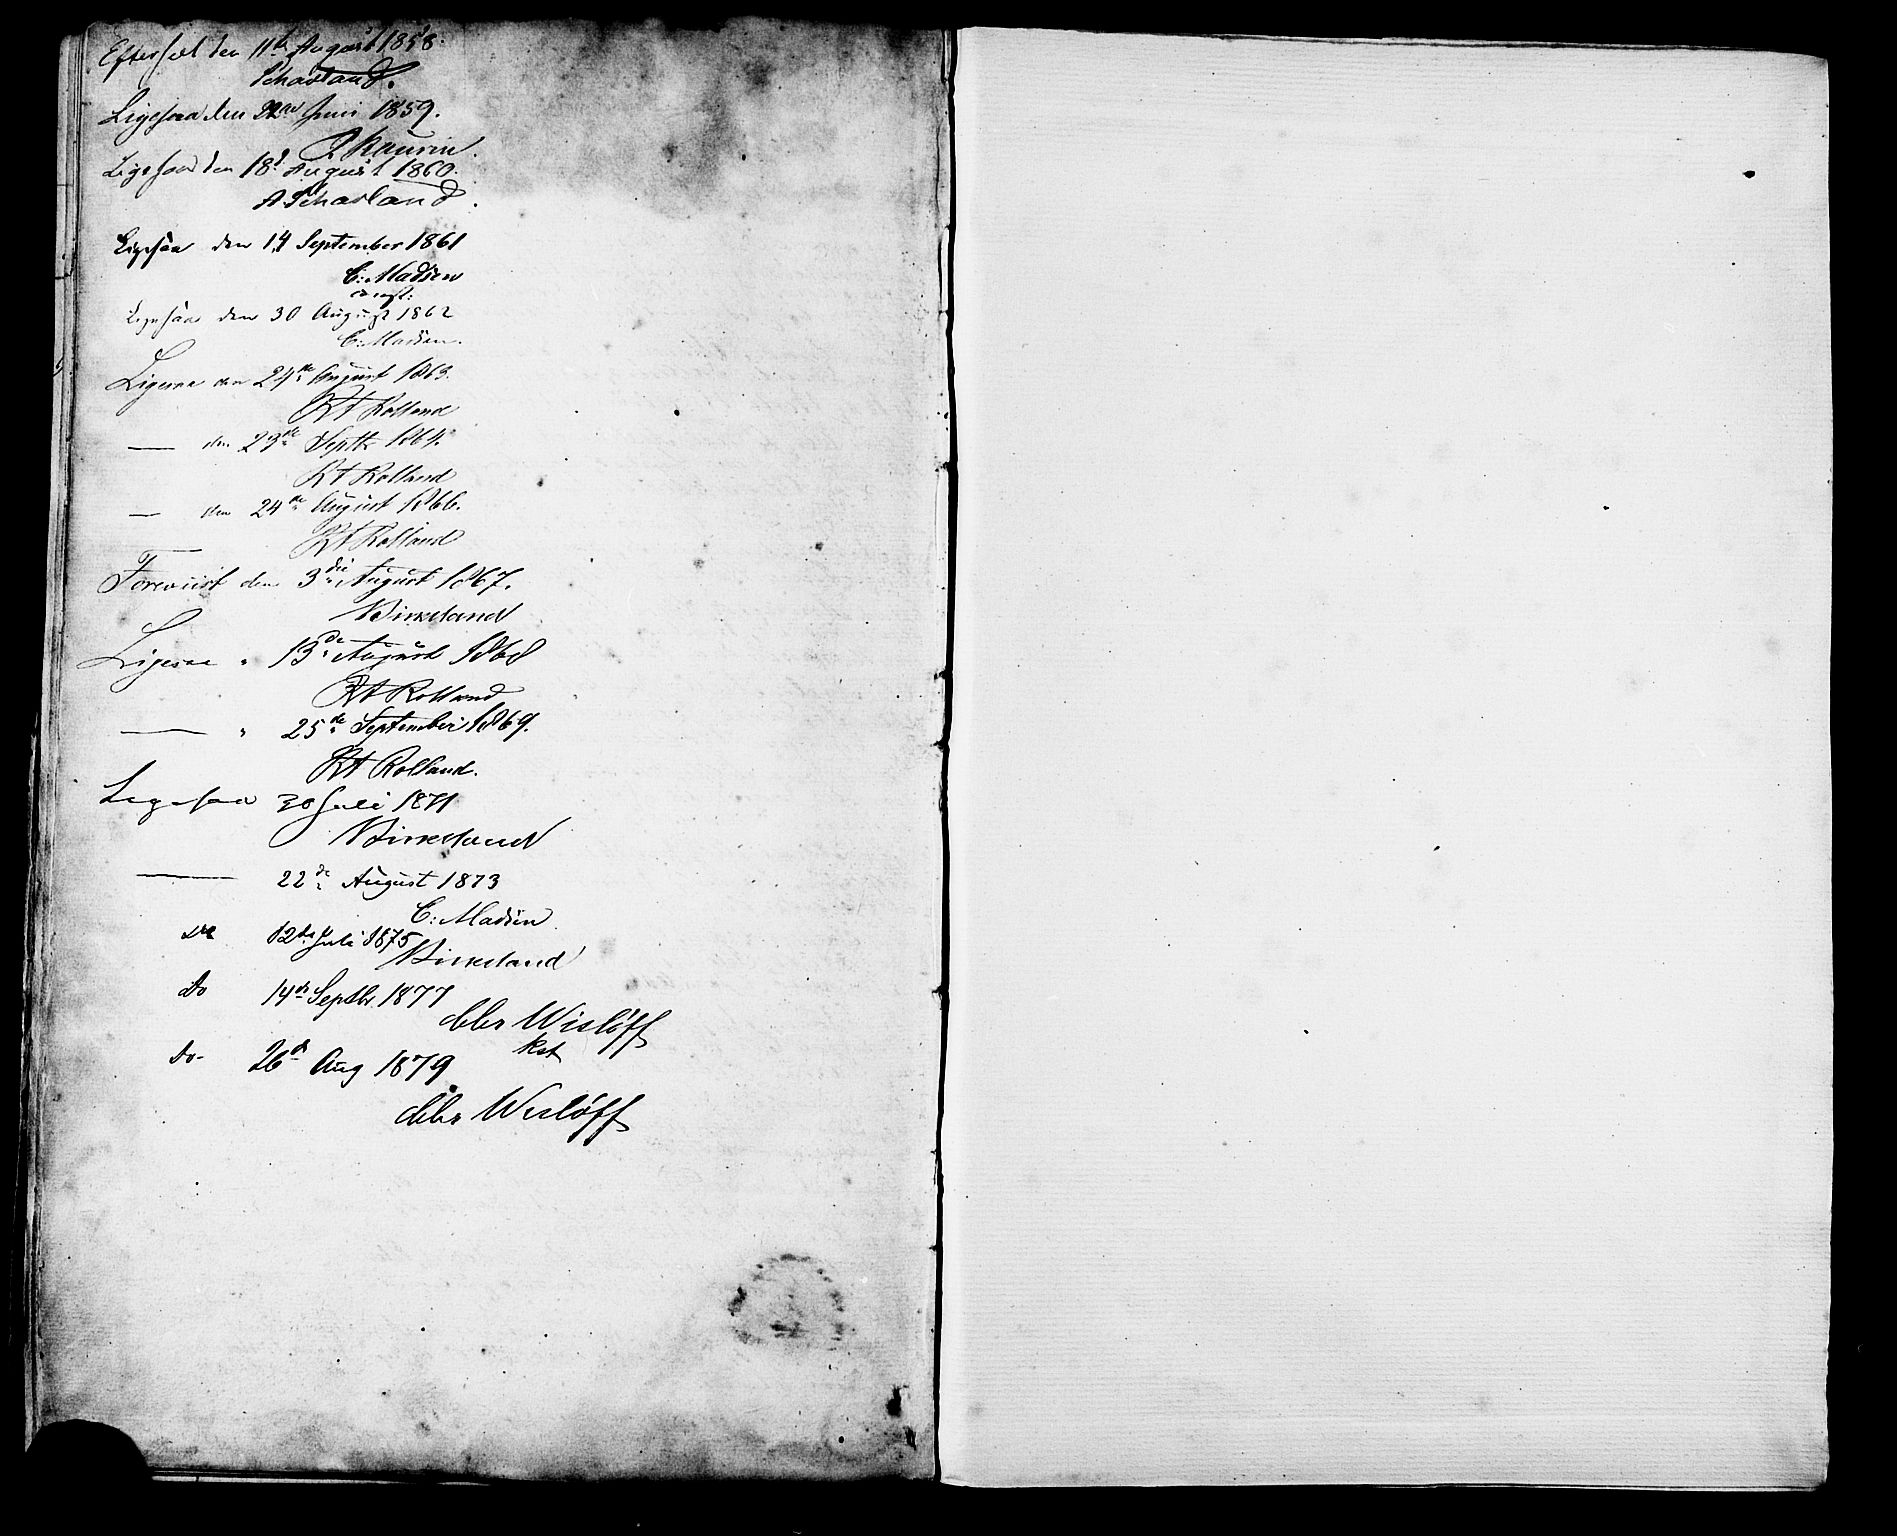 Efterseet den 11te August 1858.
Schavland.
Ligesaa den 22de Juni 1859.
J. Kaurin.
Ligesaa den 18d August 1860.
A Schavland.
Ligesaa den 14 September 1861
C: Madsen
const:
Ligesaa den 30 August 1862
C: Madsen.
Ligesaa den 24de August 1863.
Rolland
— den 23de Septbr 1864.
Rolland
— den 24de August 1866.
Rolland
Foreviist den 3die August 1867.
Birkeland
Ligesaa " 13de August 1868
Rolland
— " 25de September 1869.
Rolland.
Ligesaa 30 Juli 1871
Birkeland
— 22de August 1873
C: Madsen.
Do 12te Juli 1875
Birkeland
Do 14de Septbr. 1877
Wisløff
kst
Do- 26d Aug 1879
Wisløff